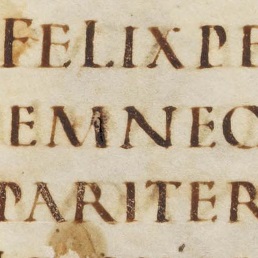 FELIXPE
EMNEQ
PARITER